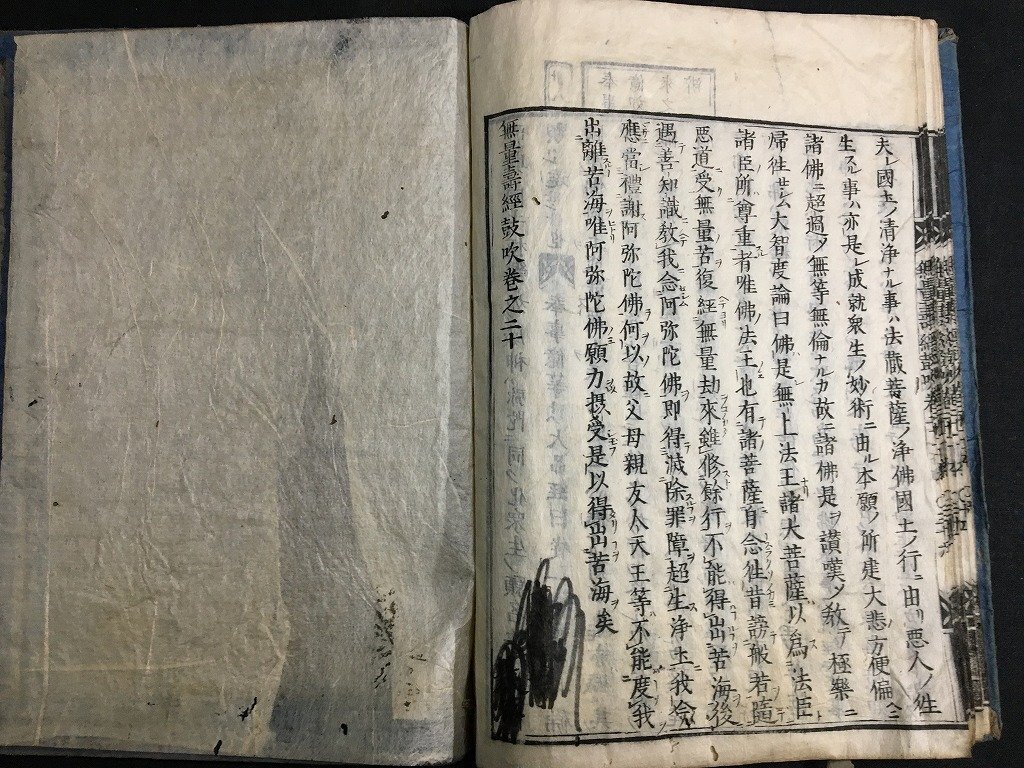 夫レ國土ノ清浄ナル事ハ法蔵菩薩ノ浄佛國土ノ行ニ由リ悪人ノ徃
生スル事ハ亦是レ成就衆生ノ妙術ニ由ル本願ノ所建大悲方便偏ヘニ
諸佛ニ超過シタ無等無倫ナルカ故ニ諸佛是ヲ讃嘆シタ敎テ極樂ニ
帰徃セシム大智度論曰佛是無上法王諸大菩薩以為法臣
諸臣所尊重者唯佛法王也有諸菩薩自念徃昔謗般若墮
悪道受無量苦復經無量劫來雖修餘行不能得出苦海後
遇善知識教我念阿弥陀佛即得滅除罪障超生浄土我今
應當禮謝阿弥陀佛何以故父母親友人天王等不能度我
出離苦海唯阿弥陀佛願力摂受是以得出苦海矣
無量壽經鼓吹巻之二十